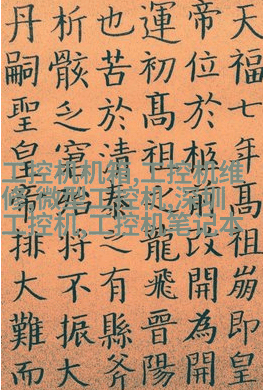 天福七年高祖崩即皇
帝位於柩前改開為開
運初髙祖龍飛晉陽
也苦於清泰之有縣斧
析骸之窘將不振大
丹嗣聖皇帝排大難而
工控机机箱,工控机维
修,微型工控机,深圳
工控机,工控机笔记本